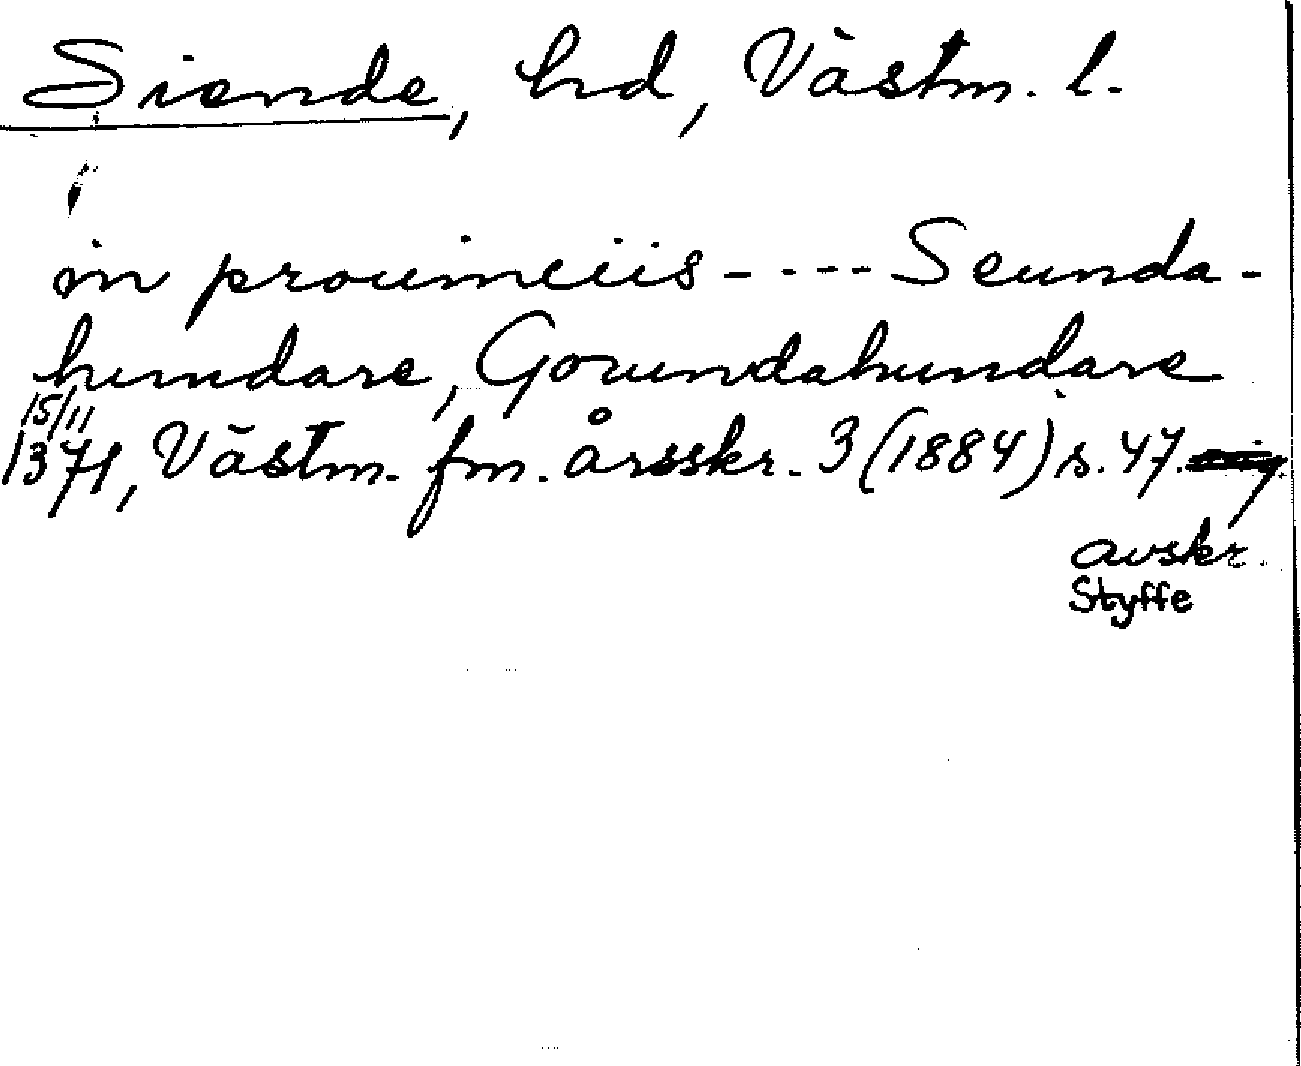 Siende, hd, Västm. l.
in prouinciis - - - - - Seunda-
hundare, Gorundahundare
15/11
1371, Västm. fm. årsskr. 3 (1884) s. 47.
avskr.
Styffe